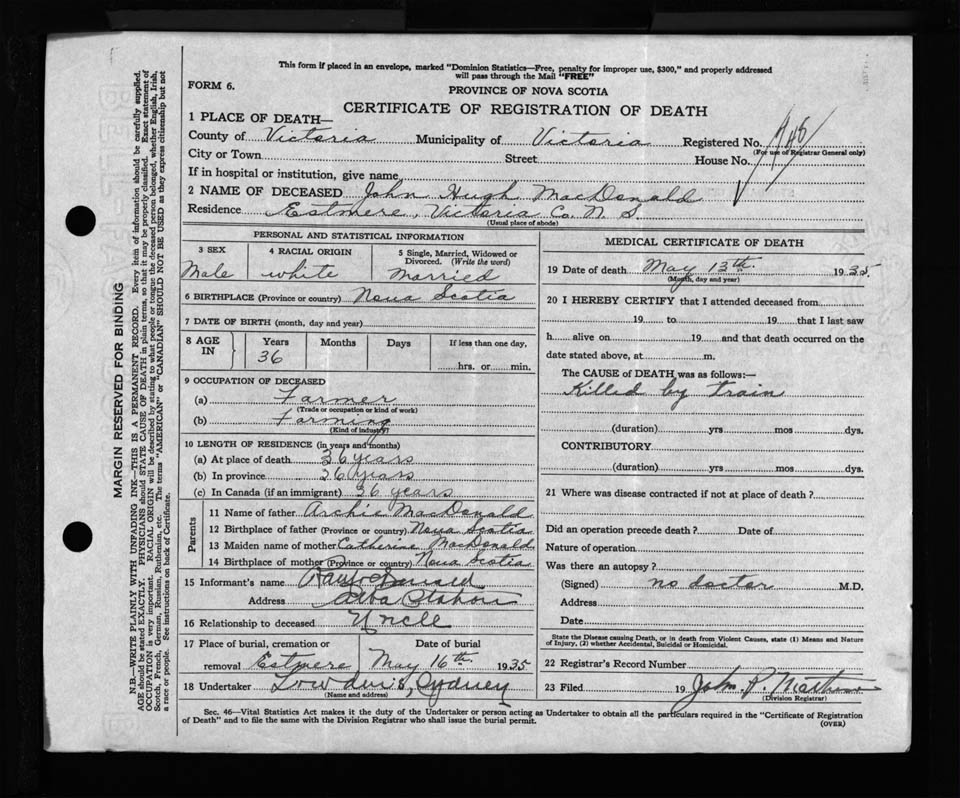 This form if placed in an envelope, marked "Dominion Statistics—Free, penalty for improper use, $300," and properly addressed
will pass through the Mail "FREE"
FORM 6.
PROVINCE OF NOVA SCOTIA
CERTIFICATE OF REGISTRATION OF DEATH
1 PLACE OF DEATH—
County of Victoria Municipality of Victoria Registered No.
(For use of Registrar General only)
City or Town Street House No.
If in hospital or institution, give name
2 NAME OF DECEASED John Hugh MacDonald
Residence Estmere, Victoria Co. N. S.
(Usual place of abode)
PERSONAL AND STATISTICAL INFORMATION
3 SEX 4 RACIAL ORIGIN 5 Single, Married, Widowed or
Divorced. (Write the word)
Male white married
6 BIRTHPLACE (Province or country) Nova Scotia
7 DATE OF BIRTH (month, day and year)
8 AGE IN Years Months Days If less than one day,
36 hrs. or min.
9 OCCUPATION OF DECEASED
(a) Farmer
(Trade or occupation or kind of work)
(b) Farming
(Kind of industry)
10 LENGTH OF RESIDENCE (in years and months)
(a) At place of death 36 years
(b) In province 36 years
(c) In Canada (if an immigrant) 36 years
Parents
11 Name of father Archie MacDonald
12 Birthplace of father (Province or country) Nova Scotia
13 Maiden name of mother Catherine MacDonald
14 Birthplace of mother (Province or country) Nova Scotia
15 Informant's name
Address Alba Station
16 Relationship to deceased Uncle
17 Place of burial, cremation or Date of burial
removal Estmere May 16th 1935
18 Undertaker Sydney
(Name and address)
MEDICAL CERTIFICATE OF DEATH
19 Date of death May 13th. 1935
(Month, day and year)
20 I HEREBY CERTIFY that I attended deceased from
19 to 19 that I last saw
h alive on 19 and that death occurred on the
date stated above, at m.
The CAUSE of DEATH was as follows:—
Killed by train
(duration) yrs mos dys.
CONTRIBUTORY
(duration) yrs mos dys.
21 Where was disease contracted if not at place of death?
Did an operation precede death? Date of
Nature of operation
Was there an autopsy?
(Signed) no doctor M.D.
Address
Date
State the Disease causing Death, or in death from Violent Causes, state (1) Means and Nature
of Injury, (2) whether Accidental, Suicidal or Homicidal.
22 Registrar's Record Number
23 Filed 19 John P.
(Division Registrar)
Sec. 46—Vital Statistics Act makes it the duty of the Undertaker or person acting as Undertaker to obtain all the particulars required in the "Certificate of Registration
of Death" and to file the same with the Division Registrar who shall issue the burial permit.
(OVER)
MARGIN RESERVED FOR BINDING
N.B.—WRITE PLAINLY WITH UNFADING INK—THIS IS A PERMANENT RECORD. Every item of information should be carefully supplied.
AGE should be stated EXACTLY. PHYSICIANS should STATE CAUSE OF DEATH in plain terms, so that it may be properly classified. Exact statement of
OCCUPATION is very important. RACIAL ORIGIN will be described by stating to what people or tongue the deceased person belonged, whether English, Irish,
Scotch, French, German, Russian, Ruthenian, etc. The terms "AMERICAN" or "CANADIAN" SHOULD NOT BE USED as they express citizenship but not
a race or people. See instructions on back of Certificate.